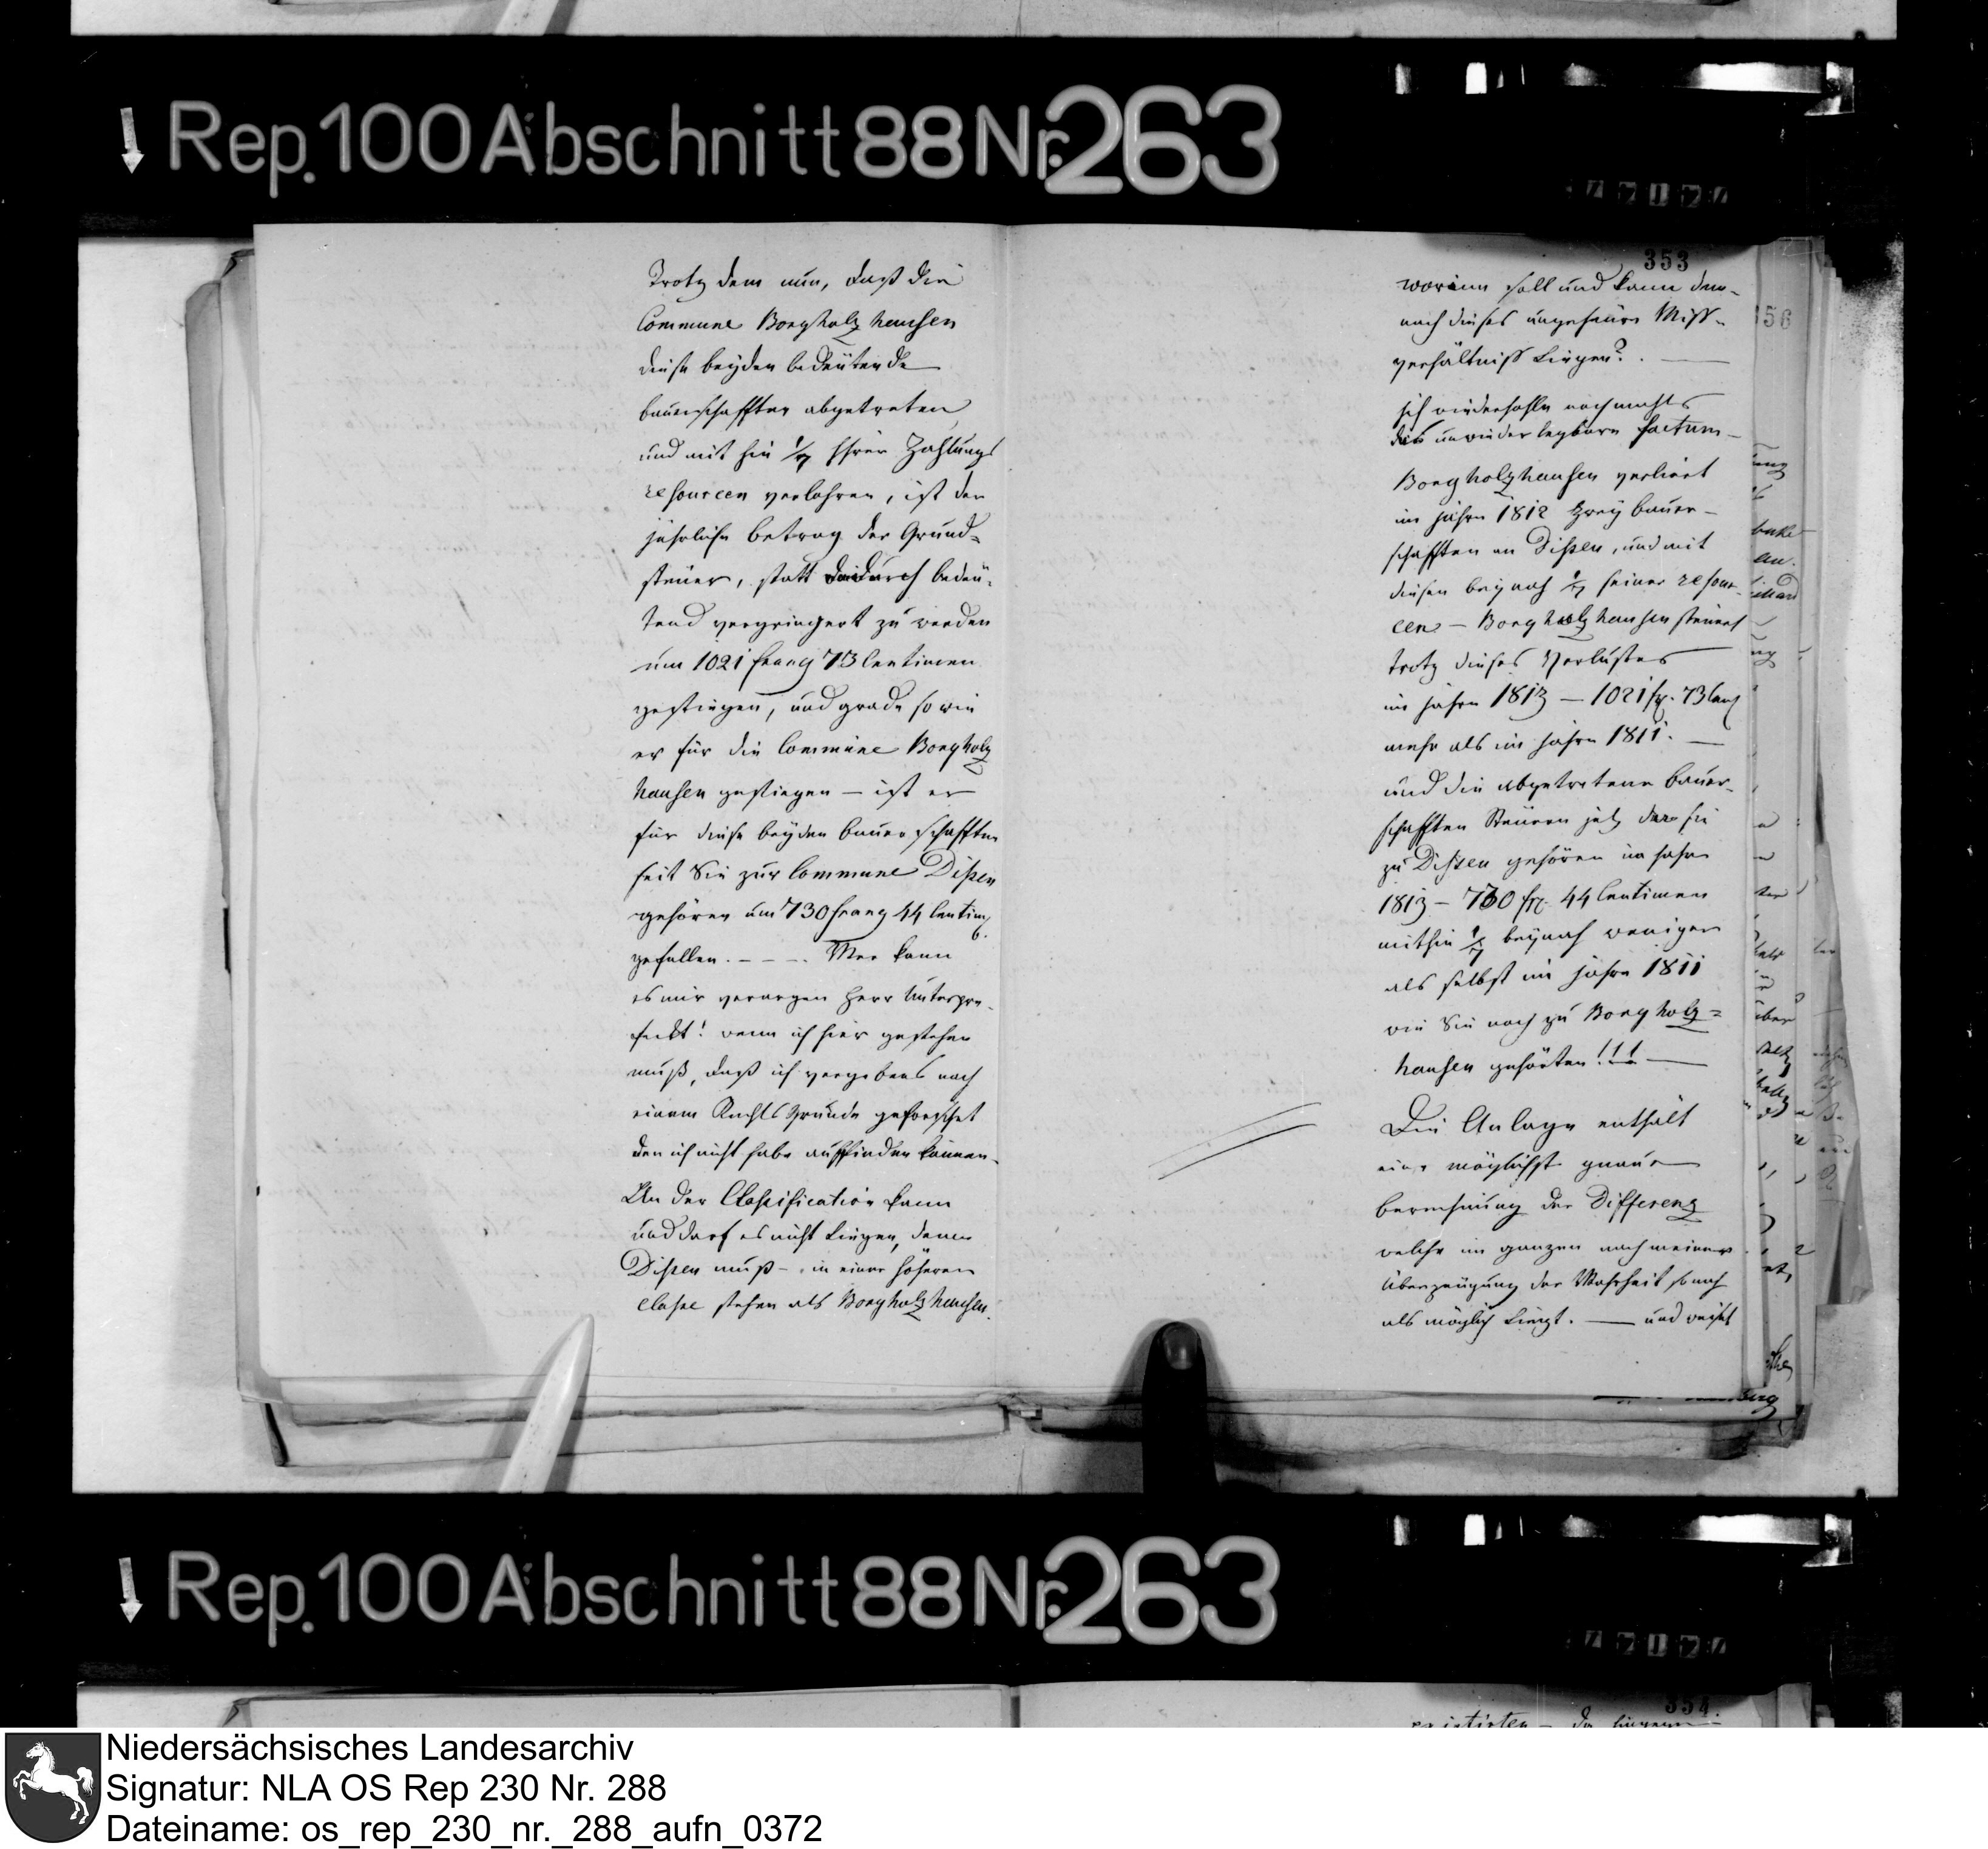 Rep. 100 Abschnitt 88 Nr. 263
Trotz dem nun, daß die
Commune Borgholzhausen
diese beyden bedeutende
bauerschafften abgetreten
und mit hin 1/7 Ihrer Zahlungs
resourcen verlohren, ist der
jährliche betrag der Grund-
steuer, statt dadurch bedeu-
tend vergringert zu werden
um 1021 franz 73 Centimen
gestiegen, und grade so wie
er für die Commune Borgholz
hausen gestiegen – ist er
für diese beyden bauerschafften
seit Sie zur Commune Dißen
gehören um 730 franz 44 Centim
gefallen. – – – . Wer kann
es mir verargen Herr Unterpre-
feckt! wenn ich hier gestehen
muß, daß ich vergebens nach
einem Rechts Grunde geforschet
den ich nicht habe auffinden können.
An der Classification kann
und darf es nicht liegen, denn
Dißen muß – in einer höheren
Classe stehen als Borgholzhausen.
353
worinn soll und kann dem-
nach dieses ungeheure Miss-
verhältniss liegen? . —
Ich wiederhohle nochmahls
das unwiederlegbare factum –
Borgholzhausen verliert
im Jahre 1812 zwey bauer-
schafften an Dißen, und mit
diesen beynah 1/7 seiner resour-
cen – Borgholzhausen steuert
trotz dieses Verlustes
im Jahre 1813 – 1021 fr. 73 Cent
mehr als im Jahre 1811. —
und die abgetretene bauer-
schafften Steuren jetz da sie
zu Dißen gehören im Jahr
1813 – 730 fr. 44 Centimen
mithin 1/7 beynah weniger
als selbst im Jahre 1811
wie Sie noch zu Borgholz-
hausen gehörten!!! —
Die Anlage enthält
eine möglichst genaue
berechnung der Differenz
welche im ganzen nach meiner
Überzeugung der Wahrheit so nah
als möglich liegt. — und weißt
156
Rep. 100 Abschnitt 88 Nr. 263
354.
existirten –
Niedersächsisches Landesarchiv
Signatur: NLA OS Rep 230 Nr. 288
Dateiname: os_rep_230_nr._288_aufn_0372